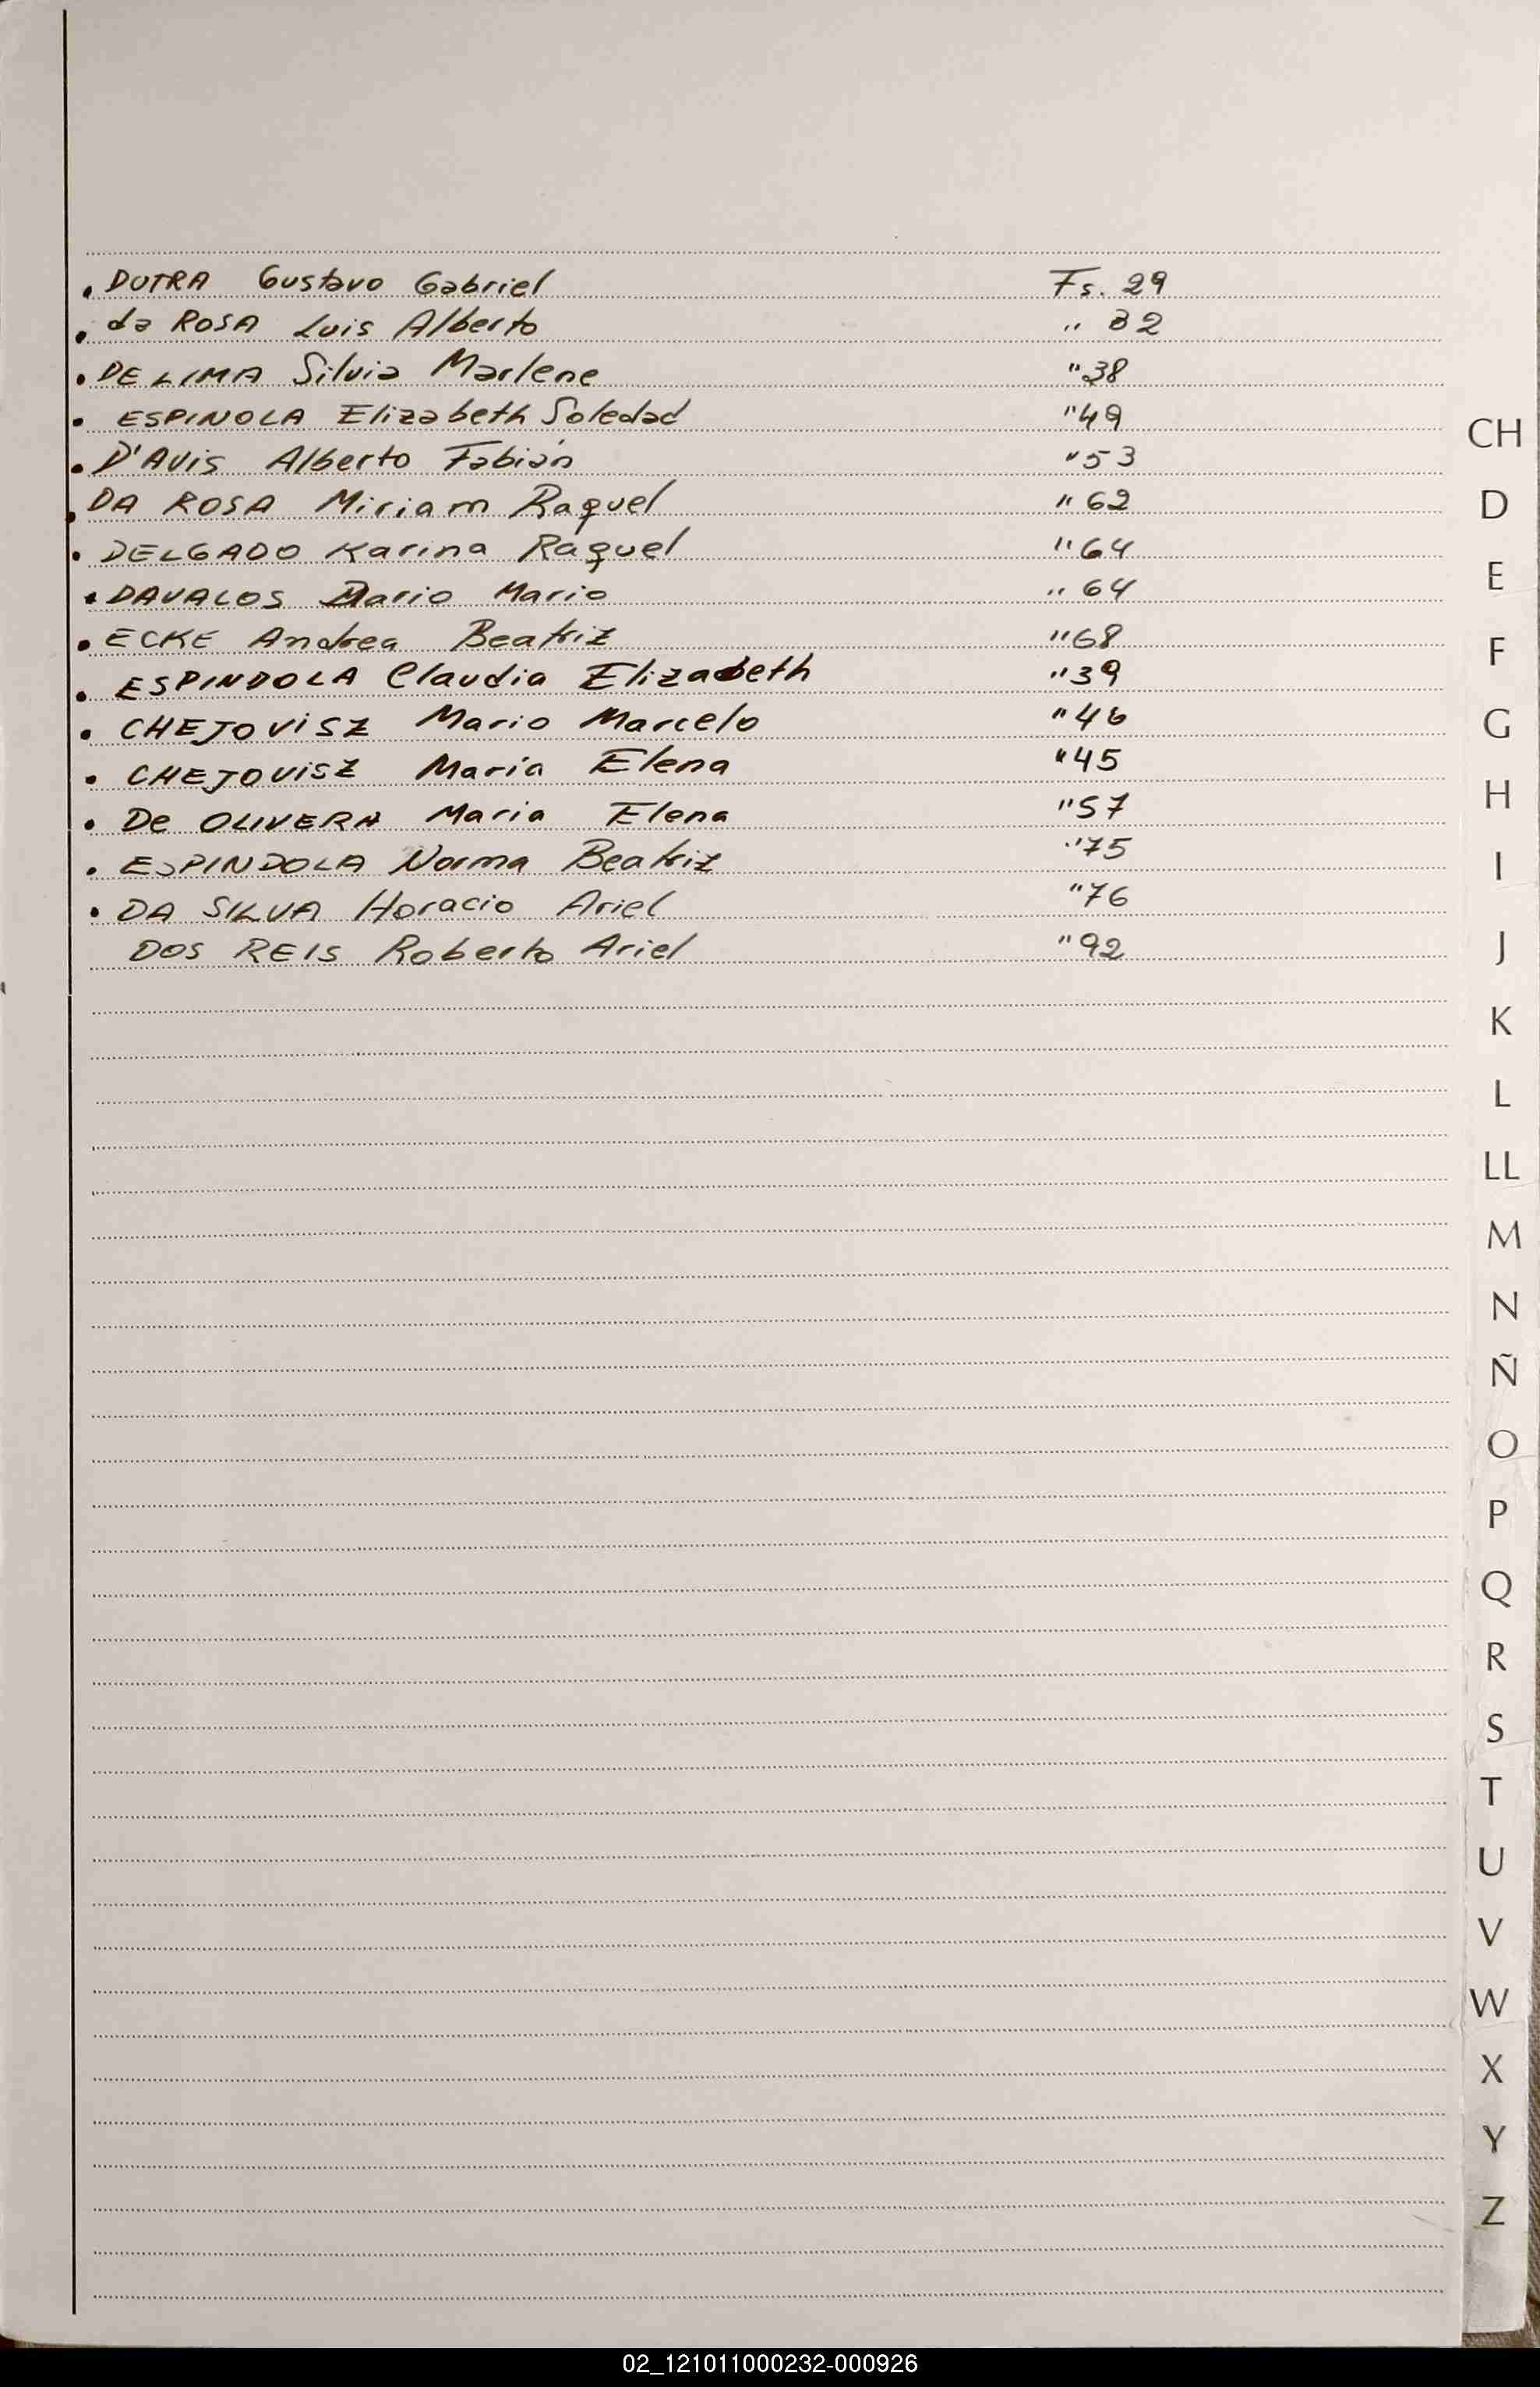 . DUTRA Gustavo Gabriel Fs. 29
. da ROSA Luis Alberto " 32
. DE LIMA Silvia Marlene " 38
. ESPINOLA Elizabeth Soledad " 49
. D'AVIS Alberto Fabián " 53
. DA ROSA Miriam Raquel " 62
. DELGADO Karina Raquel " 64
. DAVALOS Dario Mario " 64
. ECKE Andrea Beatriz " 68
. ESPINDOLA Claudia Elizabeth " 39
. CHEJOVISZ Mario Marcelo " 46
. CHEJOVISZ Maria Elena " 45
. De OLIVERA Maria Elena " 57
. ESPINDOLA Norma Beatriz " 75
. DA SILVA Horacio Ariel " 76
DOS REIS Roberto Ariel " 92
CH
D
E
F
G
H
I
J
K
L
LL
M
N
Ñ
O
P
Q
R
S
T
U
V
W
X
Y
Z
02_121011000232-000926